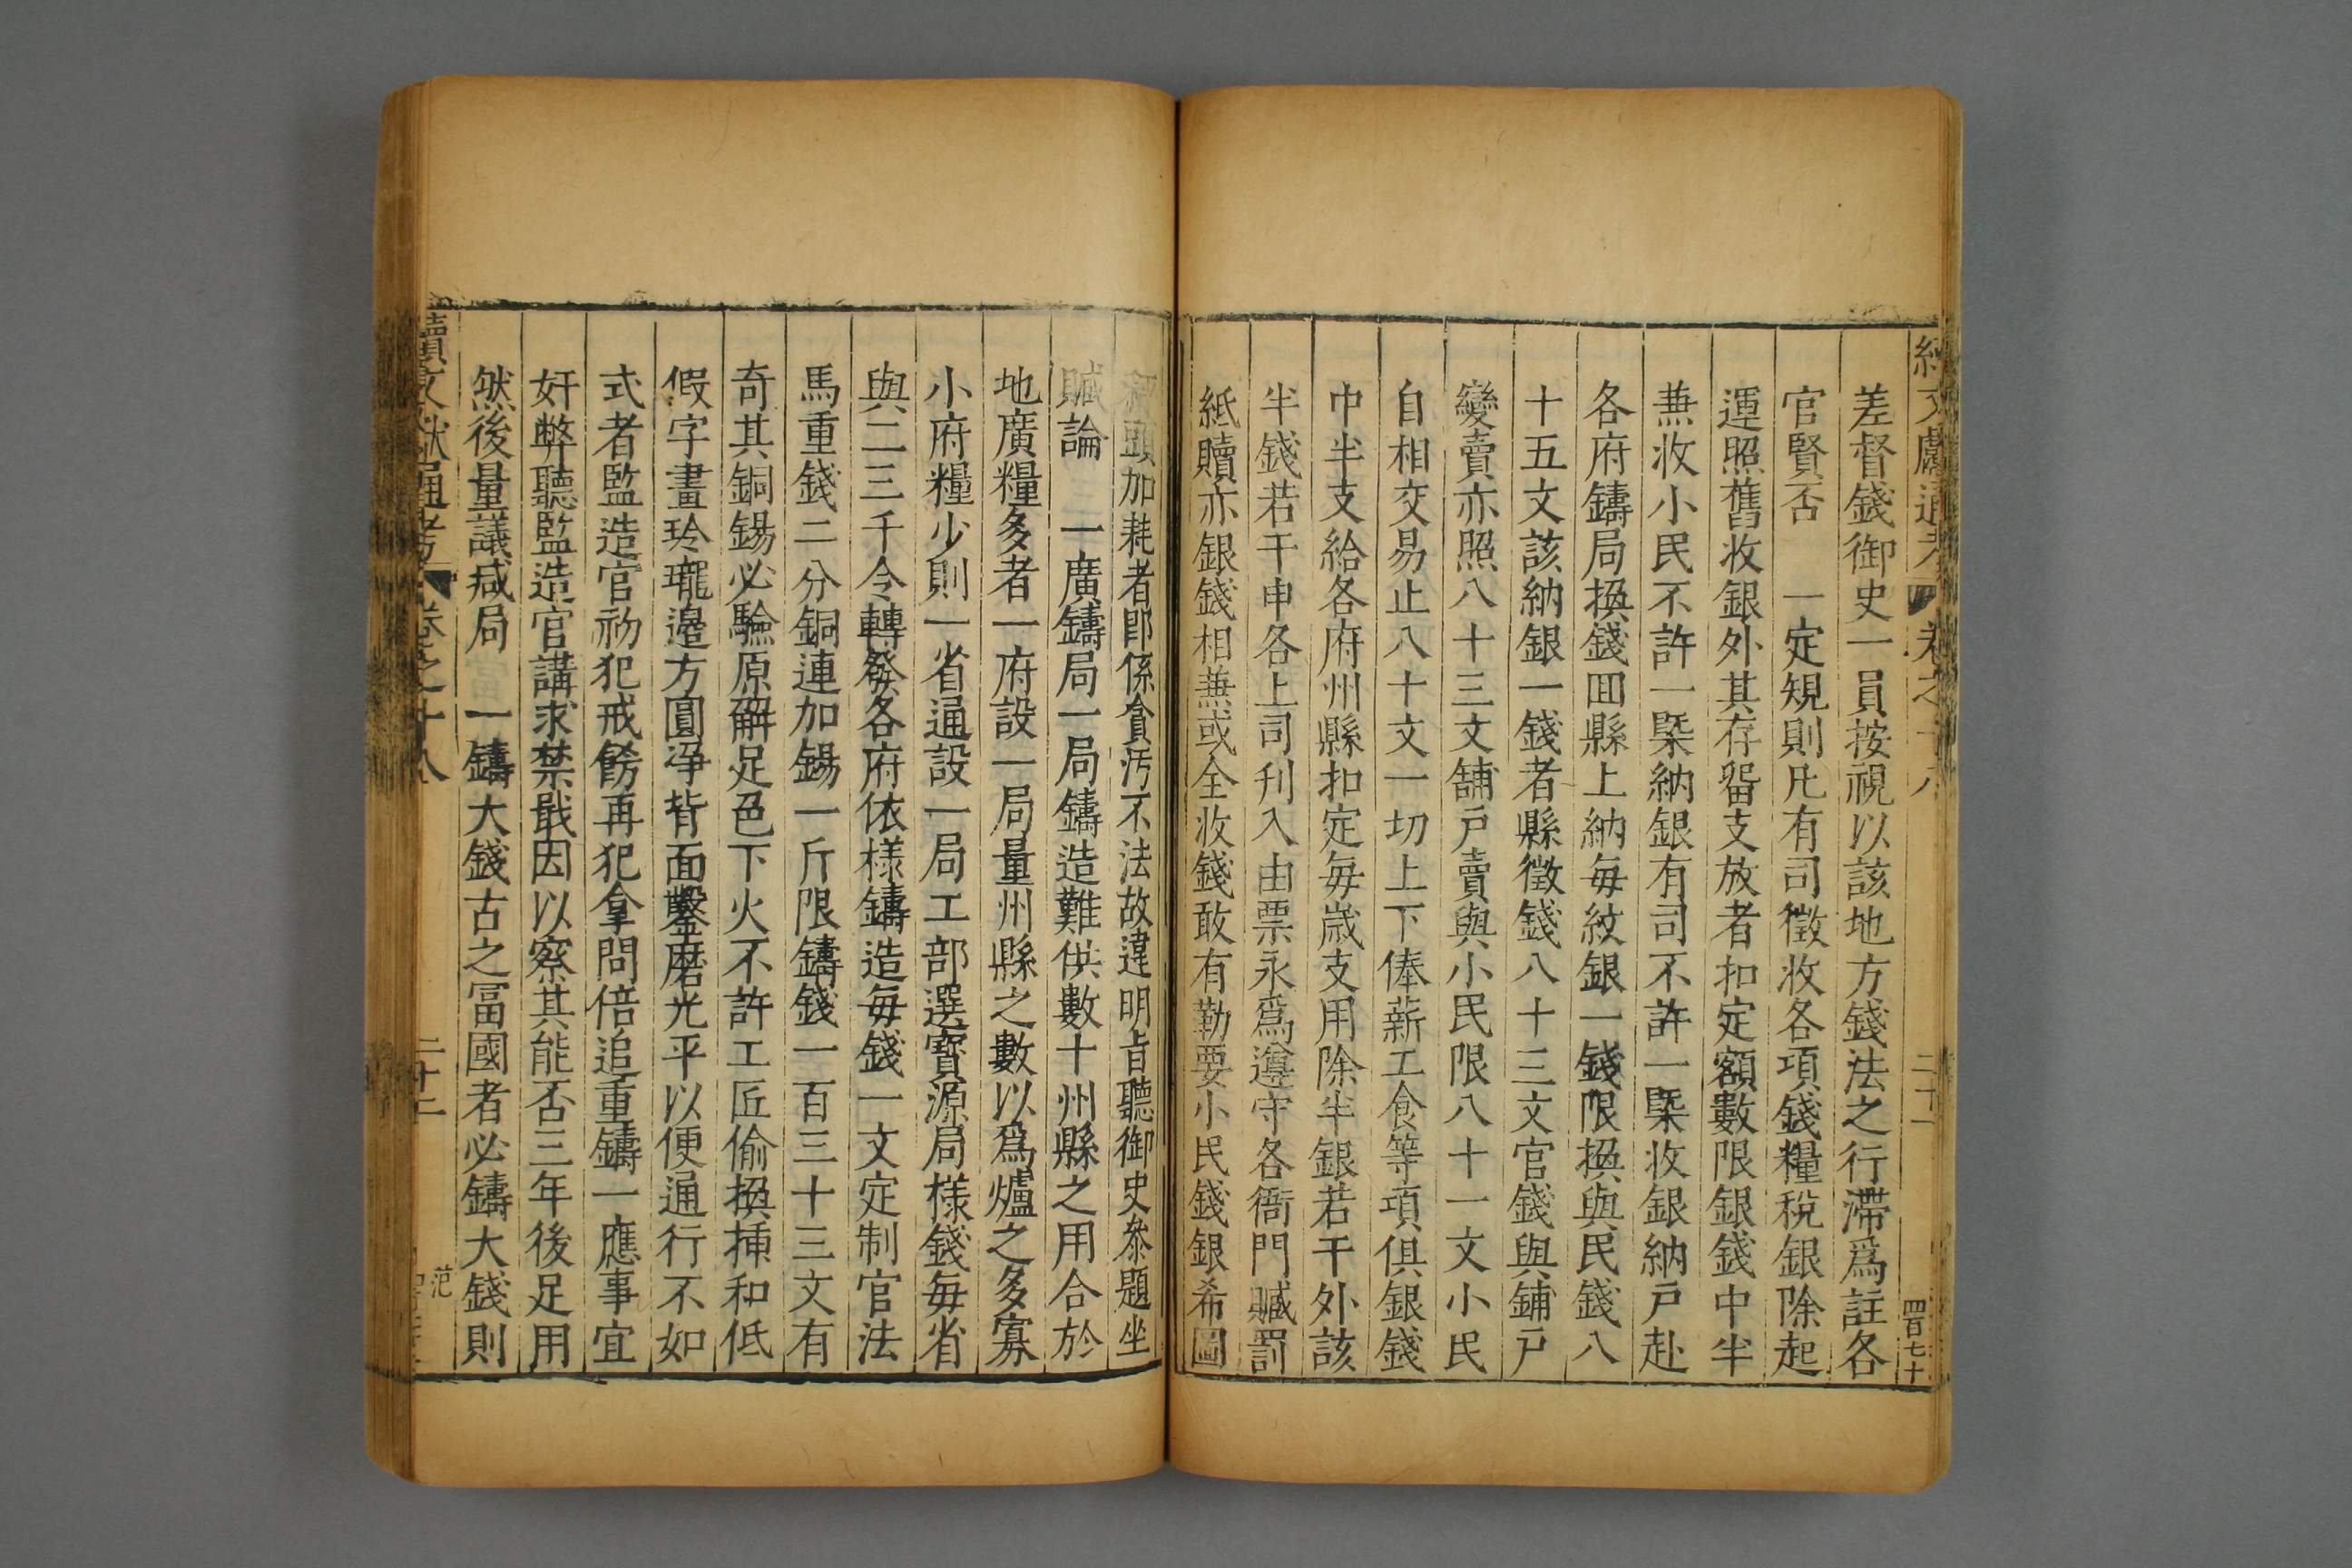 文獻通考 卷之十八 二十一 四百七十
差督錢御史一員按視以該地方錢法之行滯爲註各
官賢否 一定規則凡有司徵收各項錢糧稅銀除起
運照舊收銀外其存畱支放者扣定額數限銀錢中半
兼收小民不許一槩納銀有司不許一槩收銀納戶赴
各府鑄局換錢囬縣上納每紋銀一錢限換與民錢八
十五文該納銀一錢者縣徵錢八十三文官錢與鋪戶
變賣亦照八十三文舖戶賣與小民限八十一文小民
自相交易止八十文一切上下俸薪工食等項俱銀錢
中半支給各府州縣扣定每歲支用除半銀若干外該
半錢若干申各上司刋入由票永爲遵守各衙門贓罰
紙贖亦銀錢相兼或全收錢敢有勒要小民錢銀希圖
頭加耗者卽係貪汚不法故違明旨聽御史叅題坐
贓論 一廣鑄局一局鑄造難供數十州縣之用合於
地廣糧多者一府設一局量州縣之數以爲爐之多寡
小府糧少則一省通設一局工部選寶源局樣錢每省
與二三千令轉發各府依樣鑄造每錢一文定制官法
馬重錢二分銅連加錫一斤限鑄錢一百三十三文有
奇其銅錫必驗原觧足色下火不許工匠偷換揷和低
假字畫玲瓏邊方圓淨背面鏨磨光平以便通行不如
式者監造官初犯戒飭再犯拿問倍追重鑄一應事宜
奸弊聽監造官講求禁戢因以察其能否三年後足用
然後量議减局 一鑄大錢古之冨國者必鑄大錢則
續文獻通考 卷之十八 二十二 范